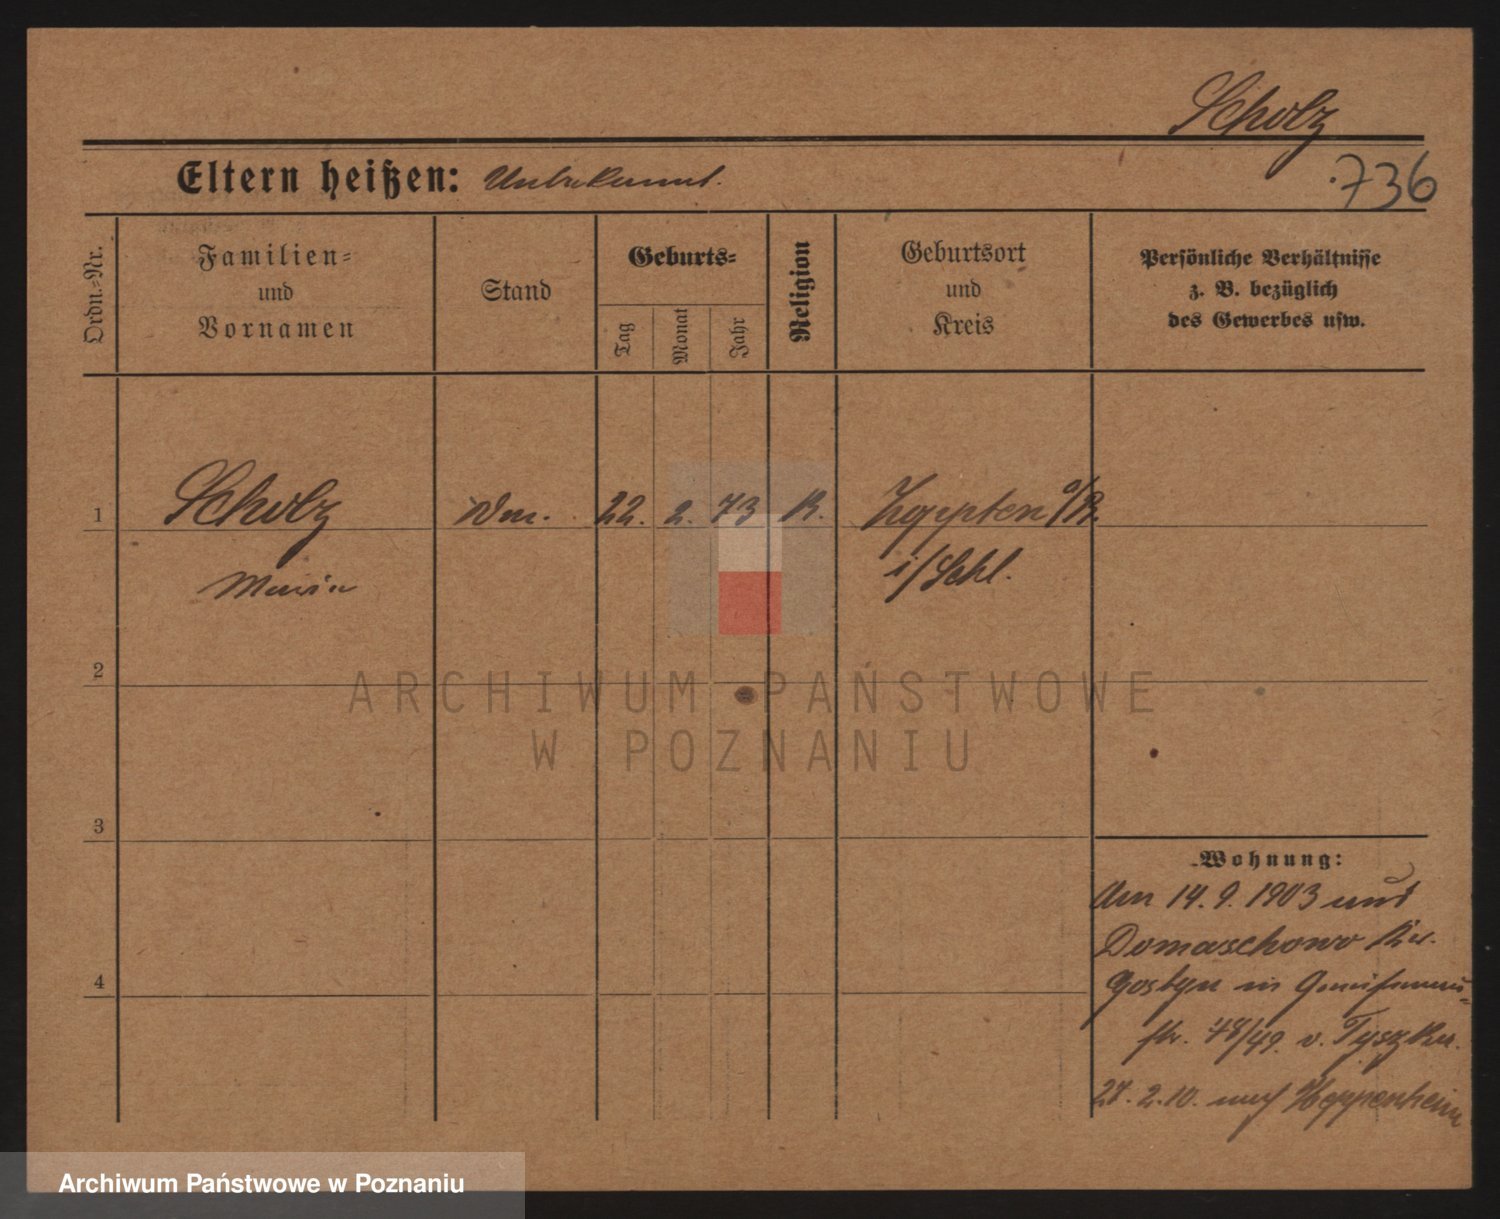 Scholz
736
Eltern heißen: Unbekannt.
Ordn.-Nr.
Familien-
und
Vornamen
Stand
Geburts-
Tag
Monat
Jahr
Religion
Geburtsort
und
Kreis
Persönliche Verhältnisse
z. B. bezüglich
des Gewerbes usw.
1
Scholz 22. 2. 73 K.
i/Schl.
Maria
2
ARCHIWUM PAŃSTWOWE
W POZNANIU
3
Wohnung:
Am 14. 9. 1903 aus
Domaschowo Kr.
Gostyn in Gneisenau-
str. 48/49. v. Tyszka.
27. 2. 10. nach Heppenheim
4
Archiwum Państwowe w Poznaniu